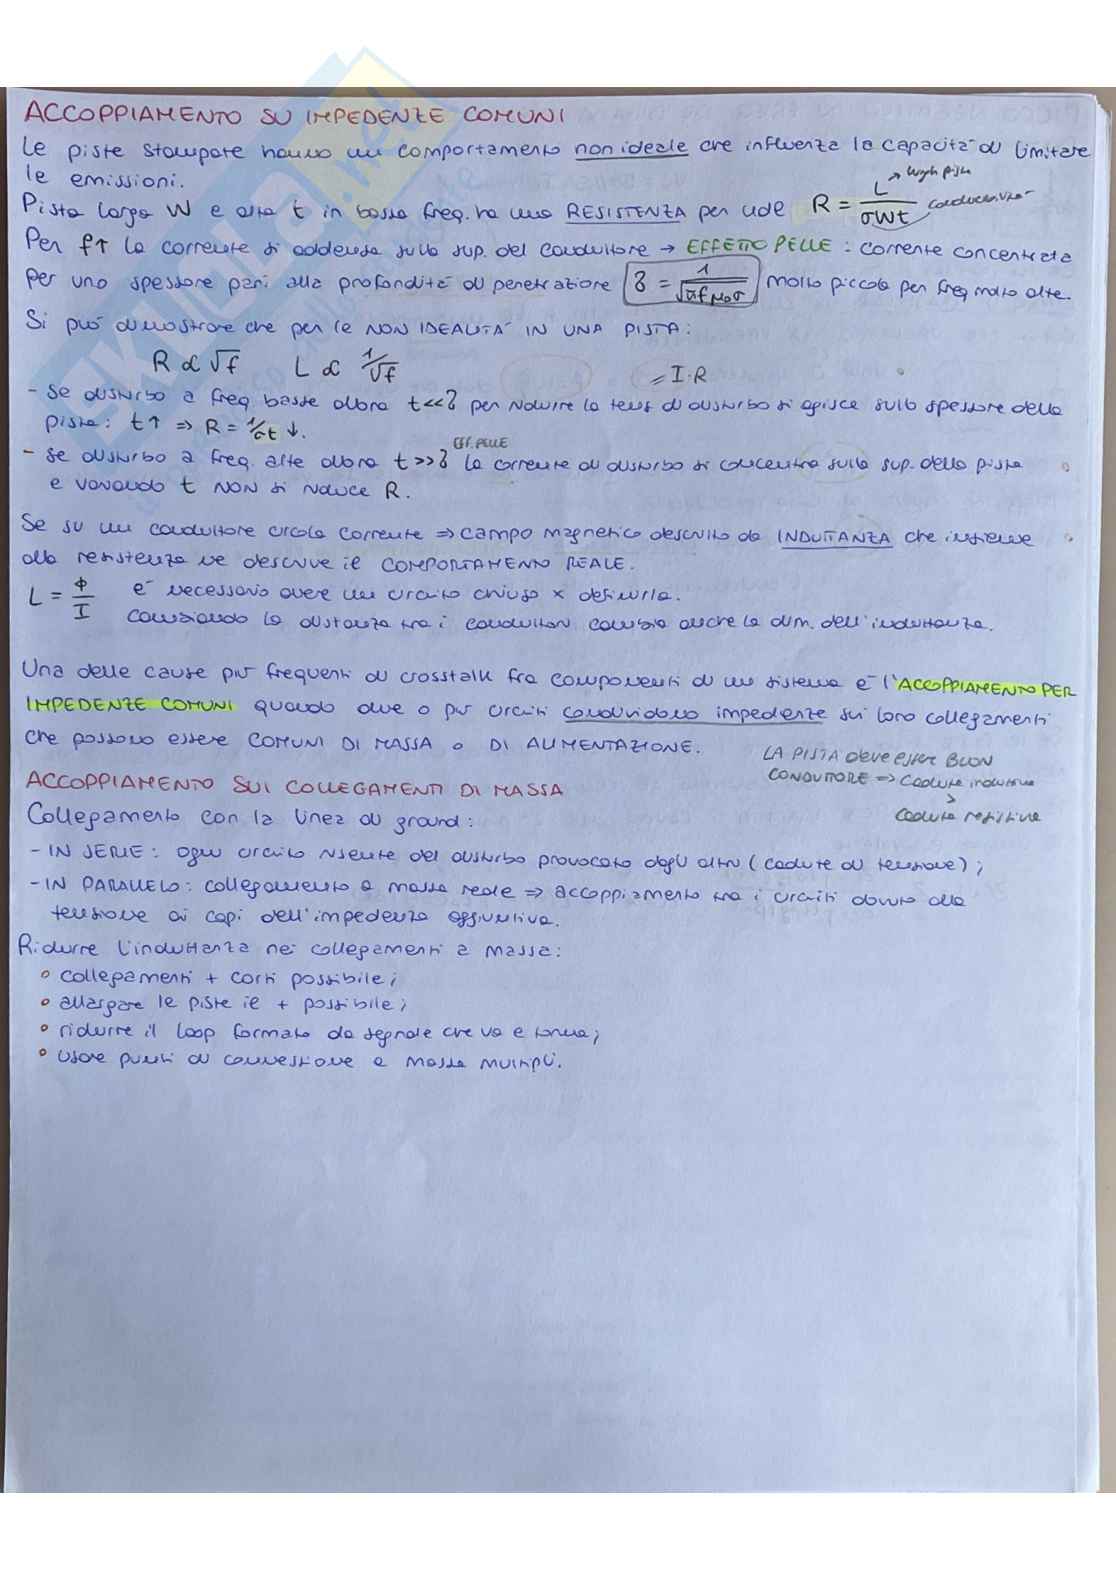 ACCOPPIAMENTO SU IMPEDENZE COMUNI
Le piste stampate hanno un comportamento non ideale che influenza la capacità di limitare
le emissioni.
lungh pista
Pista larga W e alta t in bassa freq. ha una RESISTENZA per ude R = L/σWt conducibilità
Per f↑ la corrente si addensa sulla sup. del conduttore → EFFETTO PELLE : corrente concentrata
per uno spessore pari alla profondità di penetrazione δ = 1/√πfμ₀σ molto piccola per freq molto alte.
Si può dimostrare che per le NON IDEALITÀ IN UNA PISTA:
R ∝ √f L ∝ 1/√f
= I·R
- Se disturbo a freq. basse allora t<<δ per ridurre la tens di disturbo si agisce sullo spessore della
pista: t↑ ⇒ R = 1/σt ↓.
EFF. PELLE
- Se disturbo a freq. alte allora t>>δ la corrente di disturbo si concentra sulla sup. della pista
e variando t NON si riduce R.
Se su un conduttore circola corrente ⇒ campo magnetico descritto da INDUTTANZA che insieme
alla resistenza ne descrive il COMPORTAMENTO REALE.
L = Φ/I è necessario avere un circuito chiuso x definirla.
cambiando la distanza tra i conduttori cambia anche la dim. dell'induttanza.
Una delle cause più frequenti di crosstalk fra componenti di un sistema è l'ACCOPPIAMENTO PER
IMPEDENZE COMUNI quando due o più circuiti condividono impedenze sui loro collegamenti
che possono essere COMUNI DI MASSA o DI ALIMENTAZIONE.
LA PISTA deve esser BUON
CONDUTTORE ⇒ Cadute induttive
>
Cadute resistive
ACCOPPIAMENTO SUI COLLEGAMENTI DI MASSA
Collegamento con la linea di ground:
- IN SERIE: ogni circuito risente del disturbo provocato dagli altri (cadute di tensione);
- IN PARALLELO: collegamento a massa reale ⇒ accoppiamento tra i circuiti dovuto alla
tensione ai capi dell'impedenza aggiuntiva.
Ridurre l'induttanza nei collegamenti a massa:
° collegamenti + corti possibile;
° allargare le piste il + possibile;
° ridurre il loop formato da segnale che va e torna;
° usare punti di connessione a massa multipli.